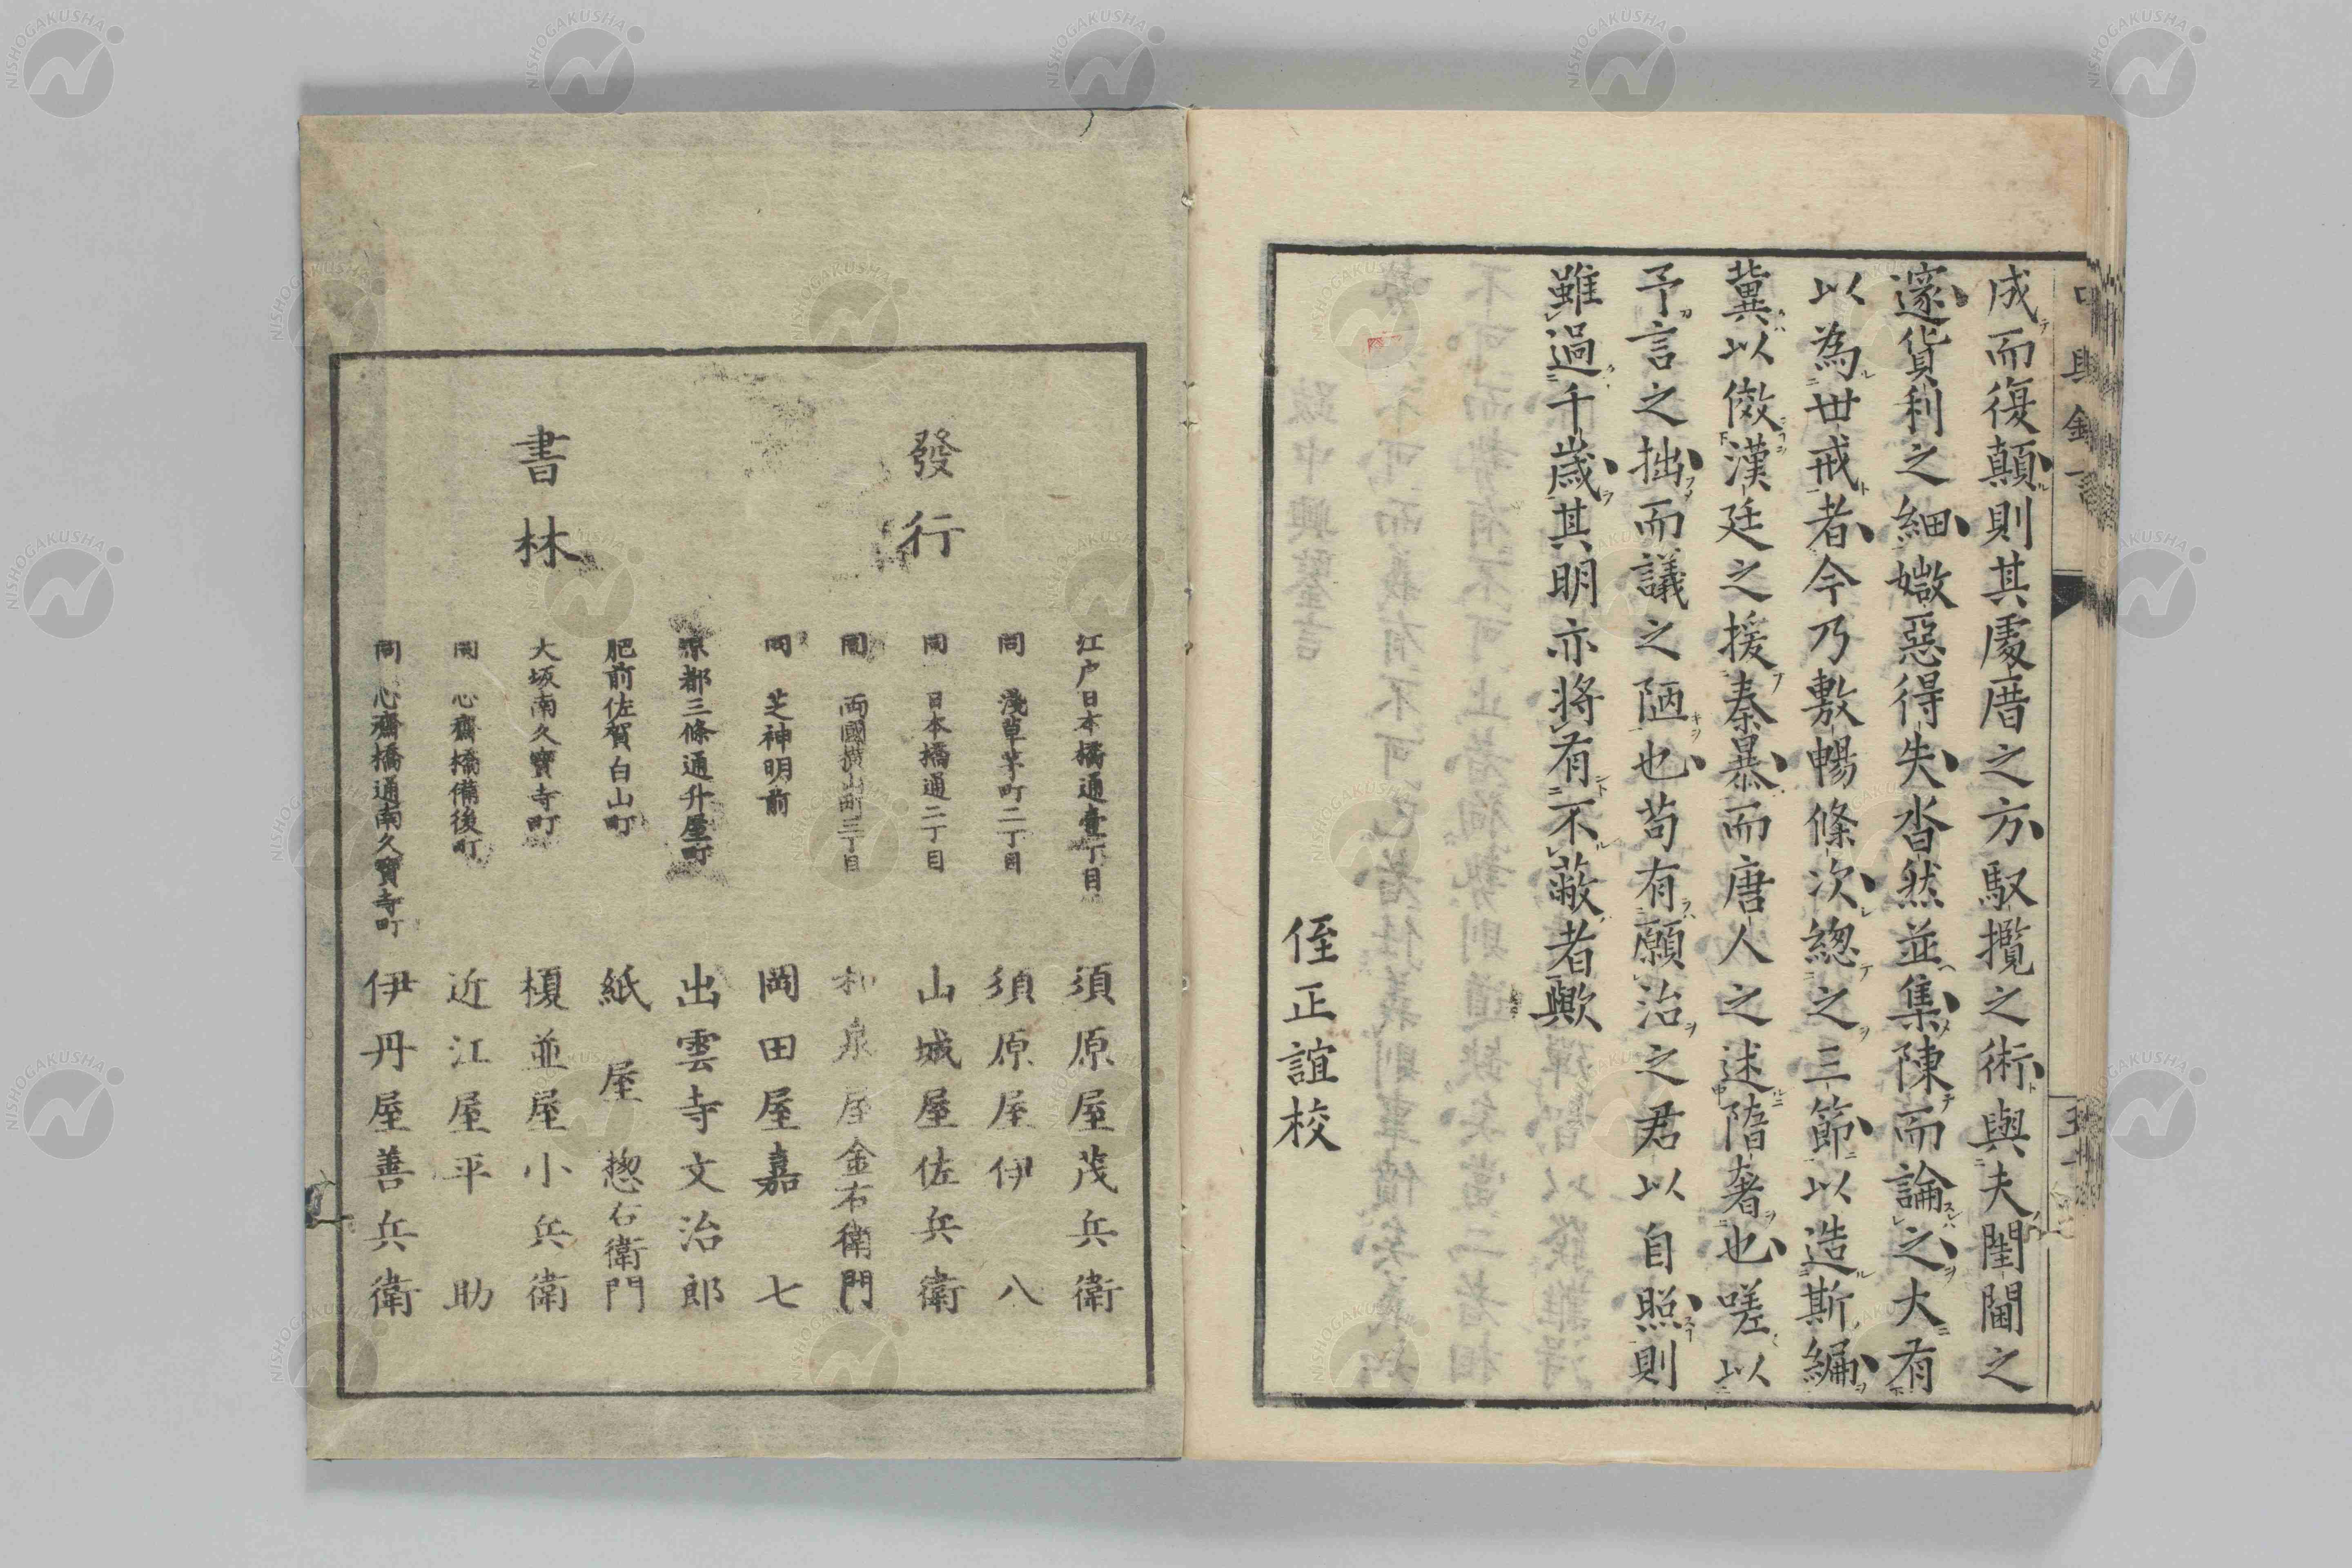 成而復顛則其處厝之方馭攬之術與夫閨閫之
邃貨利之細媺惡得失沓然並集陳而論之大有
以為丗戒者今乃敷暢條次緫之三節以造斯編
冀以倣漢廷之援秦暴而唐人之述隋奢也嗟以
予言之拙而議之陋也苟有願治之君以自照則
雖過千歲其明亦将有不蔽者歟
侄正誼校
發行
書林
江户日本橋通壹丁目 須原屋茂兵衛
同 淺草茅町二丁目 須原屋伊八
同 日本橋通二丁目 山城屋佐兵衛
同 両國橫山町三丁目 和泉屋金右衛門
同 芝神明前 岡田屋嘉七
京都三條通升屋町 出雲寺文治郎
肥前佐賀白山町 紙屋惣右衛門
大坂南久寶寺町 榎並屋小兵衛
同 心齋橋備後町 近江屋平助
同 心齋橋通南久寶寺町 伊丹屋善兵衛
NISHOGAKUSHA